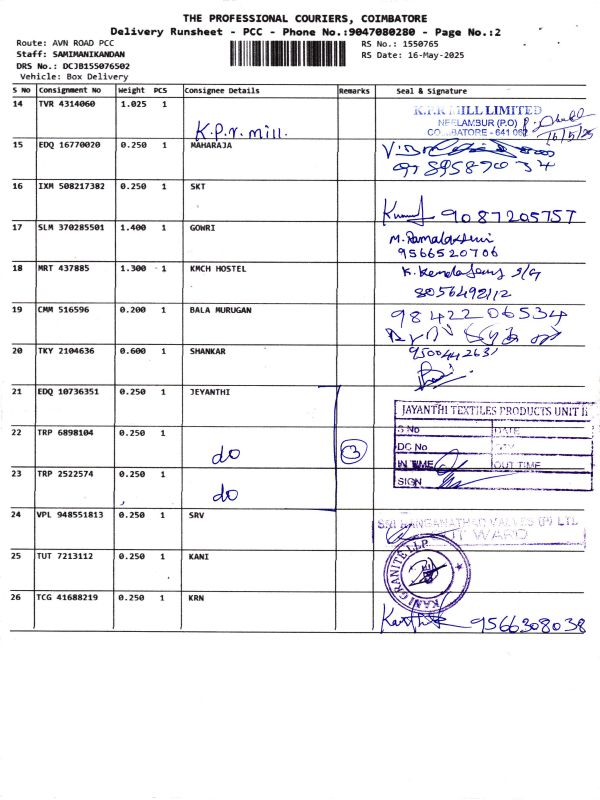 THE PROFESSIONAL COURIERS, COIMBATORE
Delivery Runsheet - PCC - Phone No.:9047080280 - Page No.:2
Route: AVN ROAD PCC RS No.: 1550765
Staff: SAMIMANIKANDAN RS Date: 16-May-2025
DRS No.: DCJB155076502
Vehicle: Box Delivery
S No Consignment No Weight PCS Consignee Details Remarks Seal & Signature
14 TVR 4314060 1.025 1 K.P.R MILL LIMITED
NEELAMBUR (P.O)
K.P.r. mill. COIMBATORE - 641 062 16/5/25
15 EDQ 16770020 0.250 1 MAHARAJA
16 IXM 508217382 0.250 1 SKT
9087205757
17 SLM 370285501 1.400 1 GOWRI
9566520706
18 MRT 437885 1.300 1 KMCH HOSTEL
19 CMM 516596 0.200 1 BALA MURUGAN 9842206534
20 TKY 2104636 0.600 1 SHANKAR 9500442631
21 EDQ 10736351 0.250 1 JEYANTHI
JAYANTHI TEXTILES PRODUCTS UNIT II
S No DATE
22 TRP 6898104 0.250 1 do 3
DC No
IN TIME OUT TIME
SIGN
23 TRP 2522574 0.250 1 do
24 VPL 948551813 0.250 1 SRV
SRI RANGANATHAR VALVES (P) LTD
25 TUT 7213112 0.250 1 KANI
KANI GRANITE LLP
26 TCG 41688219 0.250 1 KRN
9566308038